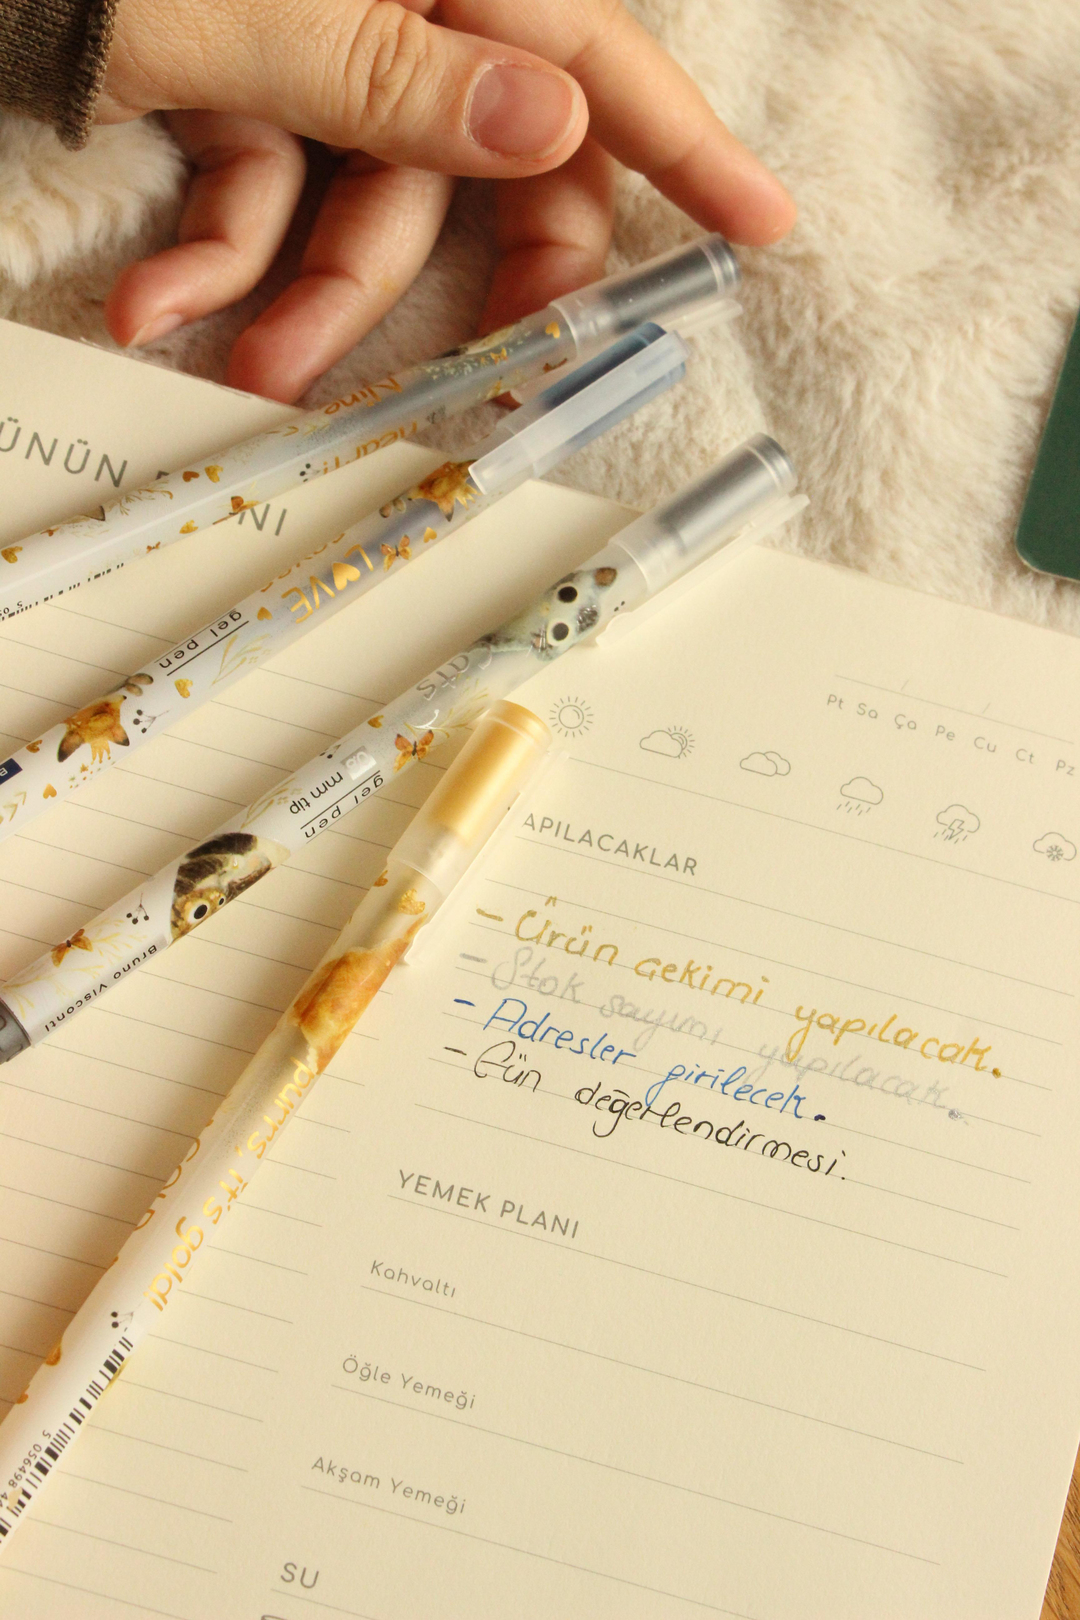 Pt Sa Ça Pe Cu Ct Pz
APILACAKLAR
- Ürün çekimi yapılacak.
- Stok sayımı yapılacak.
- Adresler girilecek.
- Gün değerlendirmesi.
YEMEK PLANI
Kahvaltı
Öğle Yemeği
Akşam Yemeği
SU
ÜNÜN
NI
Nine
LOVE
gel pen
cats
mm tip
gel pen
Bruno Visconti
purrs, it's gold!
5 056498